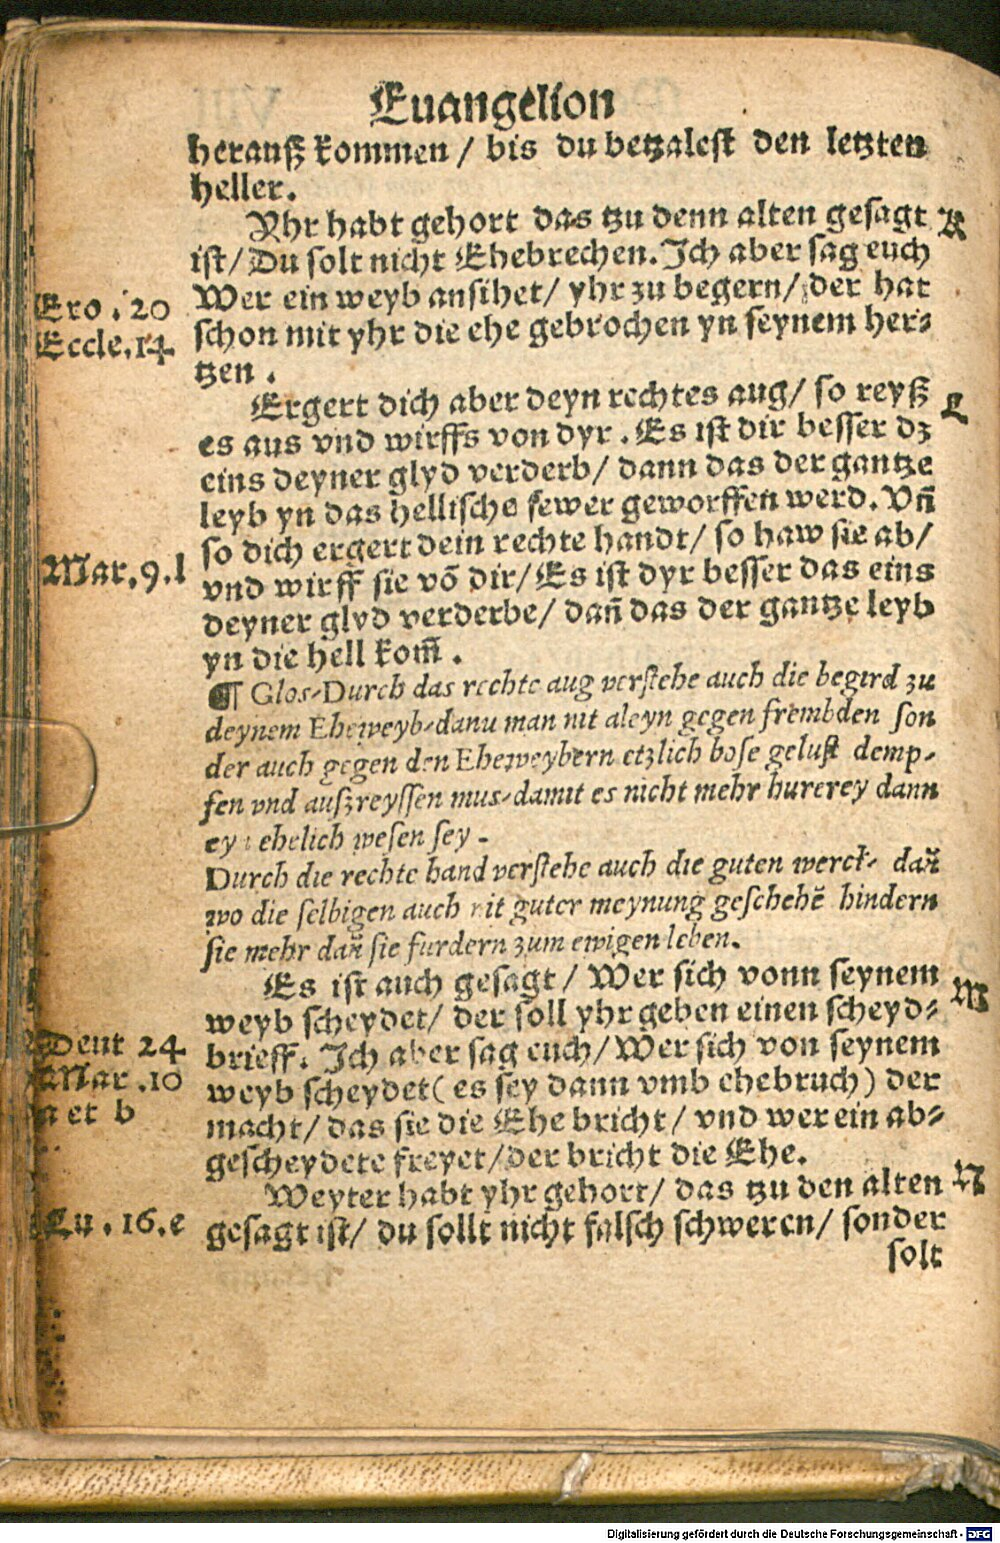 Euangelion
herauß kommen / bis du betzalest den letzten
heller.
Yhr habt gehort das tzu denn alten gesagt
K
ist/ Du solt nicht Ehebrechen. Ich aber sag euch
Wer ein weyb ansihet/ yhr zu begern/ der hat
Exo. 20
schon mit yhr die ehe gebrochen yn seynem her⸗
Eccle.14
tzen.
Ergert dich aber deyn rechtes aug/ so reyß
L
es aus vnd wirffs von dyr. Es ist dir besser dz
eins deyner glyd verderb/ dann das der gantze
leyb yn das hellische fewer geworffen werd. Vñ
so dich ergert dein rechte handt/ so haw sie ab/
Mar.9.l
vnd wirff sie võ dir/ Es ist dyr besser das eins
deyner glyd verderbe/ dañ das der gantze leyb
yn die hell kom̄.
¶ Glos-Durch das rechte aug verstehe auch die begird zu
deynem Eheweyb-danu man nit aleyn gegen frembden son
der auch gegen den Eheweybern etzlich bose gelust demp-
fen vnd außreyssen mus-damit es nicht mehr hurerey dann
ey ehelich wesen sey -
Durch die rechte hand verstehe auch die guten werck- dañ
wo die selbigen auch mit guter meynung geschehē hindern
sie mehr dañ sie furdern zum ewigen leben.
Es ist auch gesagt / Wer sich vonn seynem
M
weyb scheydet/ der soll yhr geben einen scheyd⸗
brieff. Ich aber sag euch/ Wer sich von seynem
Deut 24
weyb scheydet( es sey dann vmb ehebruch) der
Mar .10
macht/ das sie die Ehe bricht/ vnd wer ein ab⸗
a et b
gescheydete freyet/ der bricht die Ehe.
Weyter habt yhr gehort/ das tzu den alten
N
gesagt ist/ du sollt nicht falsch schweren/ sonder
Lu. 16.e
solt
Digitalisierung gefördert durch die Deutsche Forschungsgemeinschaft - DFG